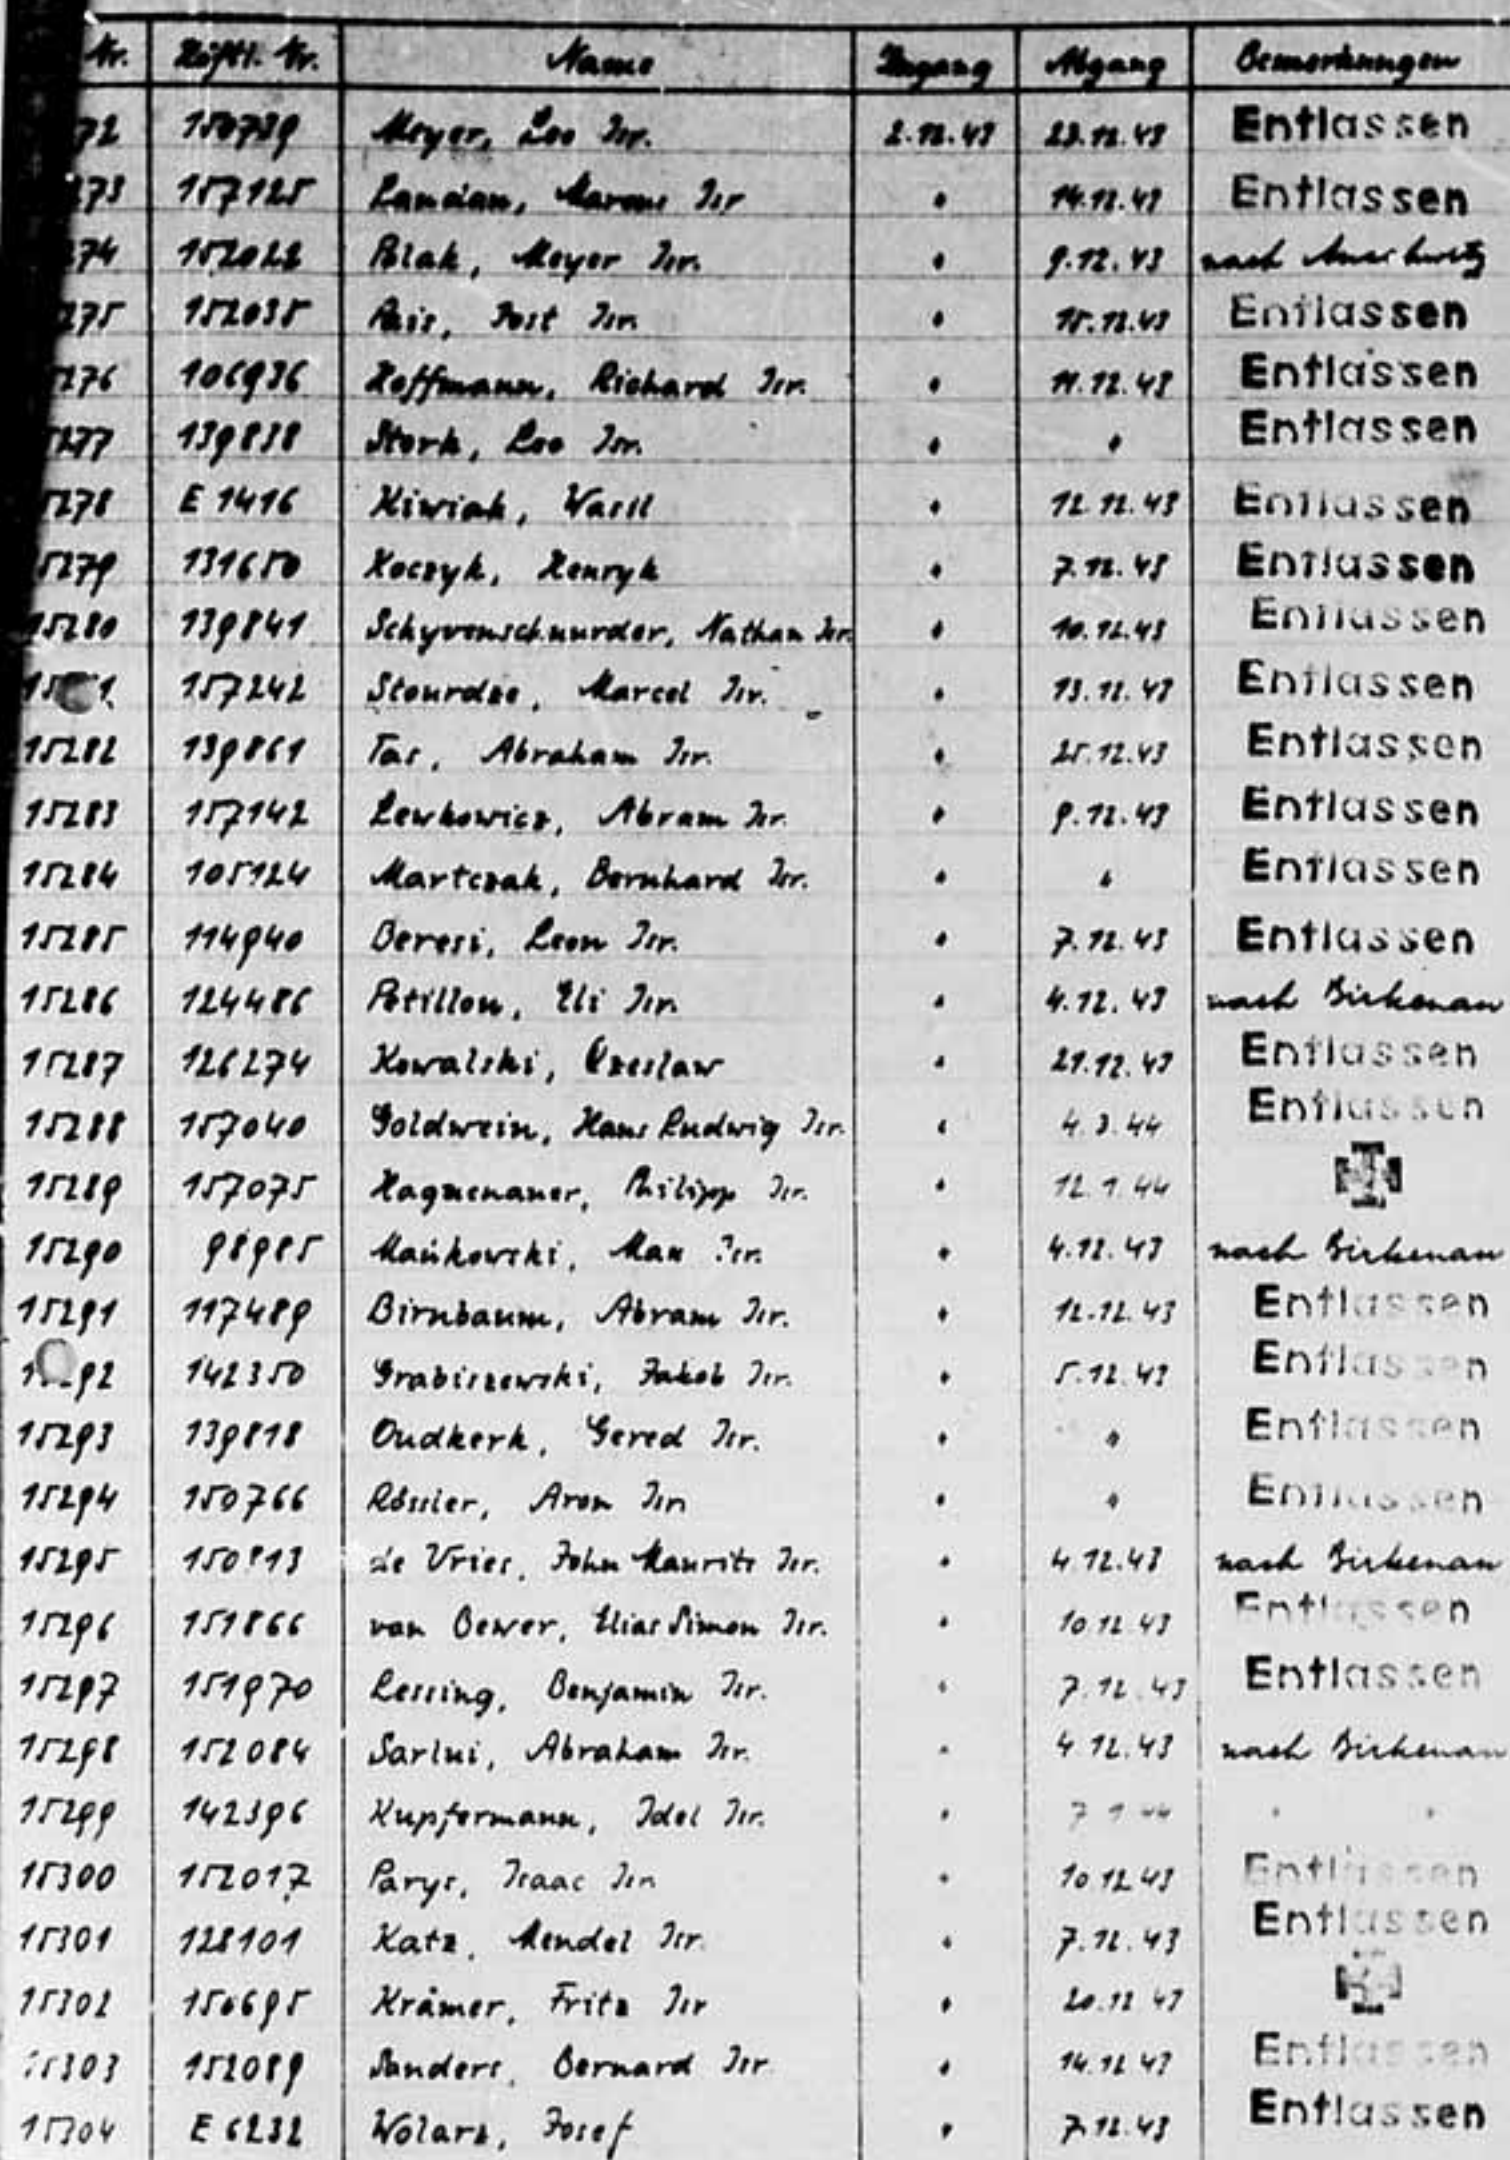 Nr. Häftl. Nr. Name Zugang Abgang Bemerkungen
72 150739 Meyer, Leo Isr. 2.12.43 23.12.43 Entlassen
273 157125 Marcus Isr " 14.12.43 Entlassen
274 152022 Polak, Meyer Isr. " 9.12.43 nach Auschwitz
275 152035 Pais, Jost Isr. " 15.12.43 Entlassen
276 106936 Hoffmann, Richard Isr. " 11.12.43 Entlassen
5277 139838 Stork, Leo Isr. " " Entlassen
5278 E 1416 Kiwiak, Wasil " 12.12.43 Entlassen
5279 131650 Koczyk, Henryk " 7.12.43 Entlassen
15280 139841 Schyvenschnurder, Nathan Isr. " 10.12.43 Entlassen
157242 Stourdze, Marcel Isr. " 13.12.43 Entlassen
15282 139861 Tas, Abraham Isr. " 25.12.43 Entlassen
15283 157142 Lewkowicz, Abram Isr. " 9.12.43 Entlassen
15284 105124 Martczak, Bernhard Isr. " " Entlassen
15285 114940 Beresi, Leon Isr. " 7.12.43 Entlassen
15286 124486 Petillon, Eli Isr. " 4.12.43 nach Birkenau
15287 126274 Kowalski, Czeslaw " 21.12.43 Entlassen
15288 157040 Goldwein, Hans Ludwig Isr. " 4.3.44 Entlassen
15289 157075 Haguenauer, Philipp Isr. " 12.1.44
15290 98985 Mańkowski, Max Isr. " 4.12.43 nach Birkenau
15291 117489 Birnbaum, Abram Isr. " 12.12.43 Entlassen
142350 Grabiszewski, Jakob Isr. " 5.12.43 Entlassen
15293 139818 Oudkerk, Gered Isr. " " Entlassen
15294 150766 Rössler, Aron Isr. " " Entlassen
15295 150813 de Vries, John Maurits Isr. " 4.12.43 nach Birkenau
15296 151866 van Bewer, Elias Simon Isr. " 10.12.43 Entlassen
15297 151970 Lessing, Benjamin Isr. " 7.12.43 Entlassen
15298 152084 Sarlui, Abraham Isr. " 4.12.43 nach Birkenau
15299 142396 Kupfermann, Idel Isr. " 7.1.44 " "
15300 152017 Parys, Isaac Isr. " 10.12.43 Entlassen
15301 128101 Katz, Mendel Isr. " 7.12.43 Entlassen
15302 150695 Krämer, Fritz Isr " 20.12.43
15303 152089 Sanders, Bernard Isr. " 14.12.43 Entlassen
15304 E 6232 Wolarz, Josef " 7.12.43 Entlassen